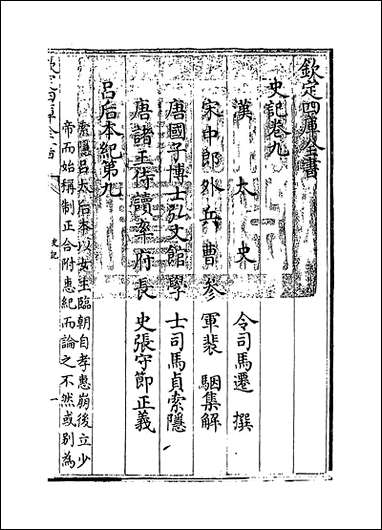 欽定四庫全書
史記卷九
漢太史令司馬遷撰
宋中郎外兵曹參軍裴駰集解
唐國子博士弘文館學士司馬貞索隱
唐諸王侍讀率府長史張守節正義
呂后本紀第九
索隱呂太后本以女主臨朝自孝惠崩後立少
帝而始稱制正合附惠紀而論之不然或别為
欽定四庫全書
史記
一